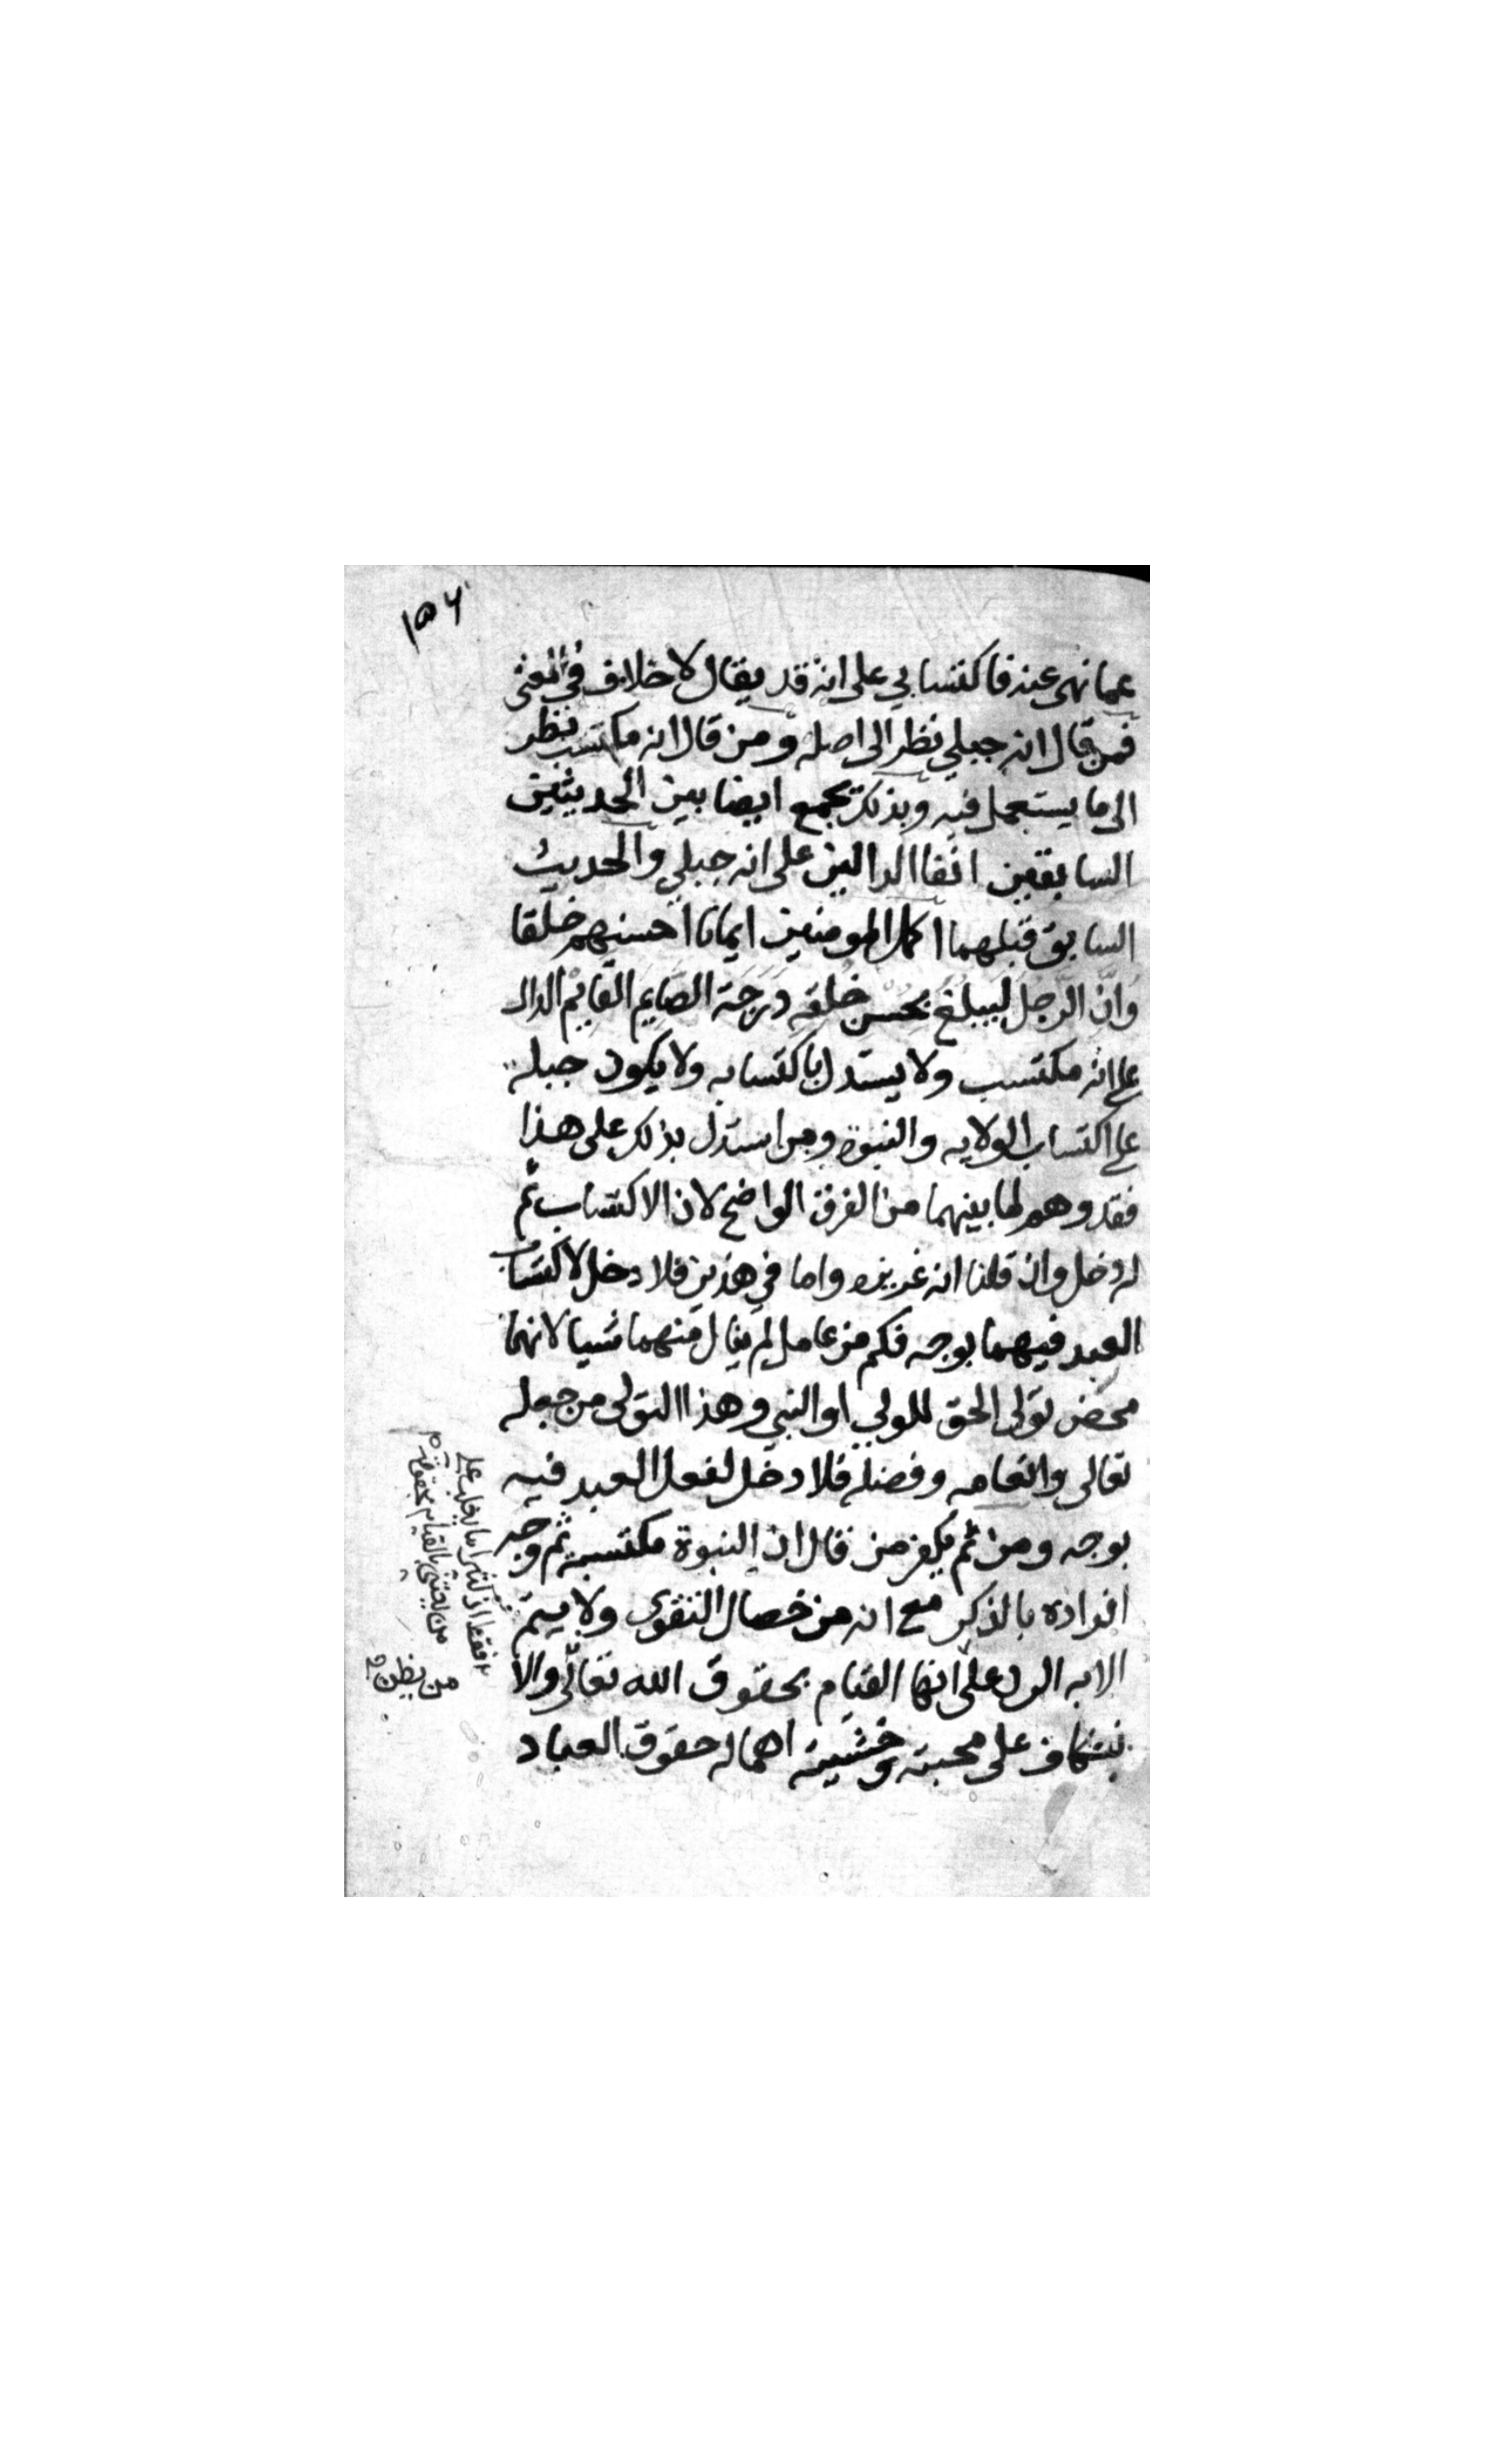 ١٥٦
عما نهى عنه فاكتسابي على انه قد يقال لا خلاف في المعنى
فمن قال انه جبلي نظر الى اصله ومن قال انه مكتسب نظر
الى ما يستعمل فيه وبذلك يجمع ايضا بين الحديثين
السابقين انفا الدالين على انه جبلي والحديث
السابق قبلهما اكمل المومنين ايمانا احسنهم خلقا
وَانّ الرّجل ليبلغ بحُسن خلقه دَرَجَة الصّايم القايم الدال
على انه مكتسب ولا يستدل باكتسابه ولا بكون جبله
على اكتساب الولايه والنبوة ومن استدل بذلك على هذا
فقد وهم لما بينهما من الفرق الواضح لان الاكتساب ثم
له دخل وان قلنا انه غريزه واما في هذين فلا دخل لاكتساب
العبد فيهما بوجه فكم من عامل لم ينال منهما شيا لانهما
محض تولى الحق للولي او النبي وهذا التولى من جعله
تعالى وانعامه وفضله فلا دخل لفعل العبد فيه
بوجه ومن ثم يكفر من قال ان النبوة مكتسبة ثم وجه
افراده بالذكر مع انه من خصال التقوى ولا يتم
الا به الرد على انها القيام بحقوق الله تعالى والا
نكفاف على محبته وخشيته اهماله حقوق العباد
فقط اذ كثيرا ما يغلب على
من يعتني بالقيام بحقوق
من يظن